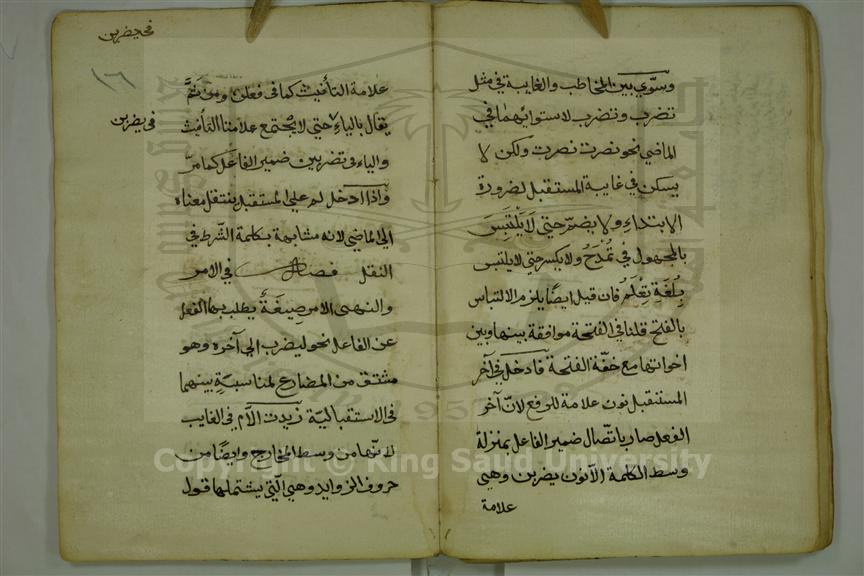 وسوّي بين المخاطب والغايبة في مثل
تضرب وتضرب لاستوائهما في
الماضي نحو نصرت نصرت ولكن لا
يسكن في غايبة المستقبل لضرورة
الابتداء ولا يضمّ حتى لا يلتبس
بالمجهول في تُمْدَحُ ولا يكسر حتى لا يلتبس
بِلُغَةِ تِعْلَمُ فان قيل ايضًا يلزم الالتباس
بالفتح قلنا في الفتحة موافقة بينها وبين
اخواتها مع خفّة الفتحة فادخل في آخر
المستقبل نون علامة للرفع لانّ آخر
الفعل صار باتّصال ضمير الفاعل بمنزلة
وسط الكلمة الّا نون يضربن وهي
علامة
في يضربن
١٦
علامة التأنيث كما في فعلن ومن ثَمَّ
يقال بالياء حتى لا يجتمع علامتا التأنيث
في يضربن
والياء في تضربين ضمير الفاعل كما مرّ
واذا ادخل لم على المستقبل ينتقل معناه
الى الماضي لانه مشابهة بكلمة الشّرط في
النقل فصل في الامر
والنهى الامر صيغَةٌ يطلب بها الفعل
عن الفاعل نحو ليضرب الى آخره وهو
مشتق من المضارع لمناسبةٍ بينهما
في الاستقباليّة زيدت اللّام في الغايب
لانّها من وسط المخارج وايضًا من
حروف الزوايد وهي الّتي يشتملها قول
Copyright © King Saud University